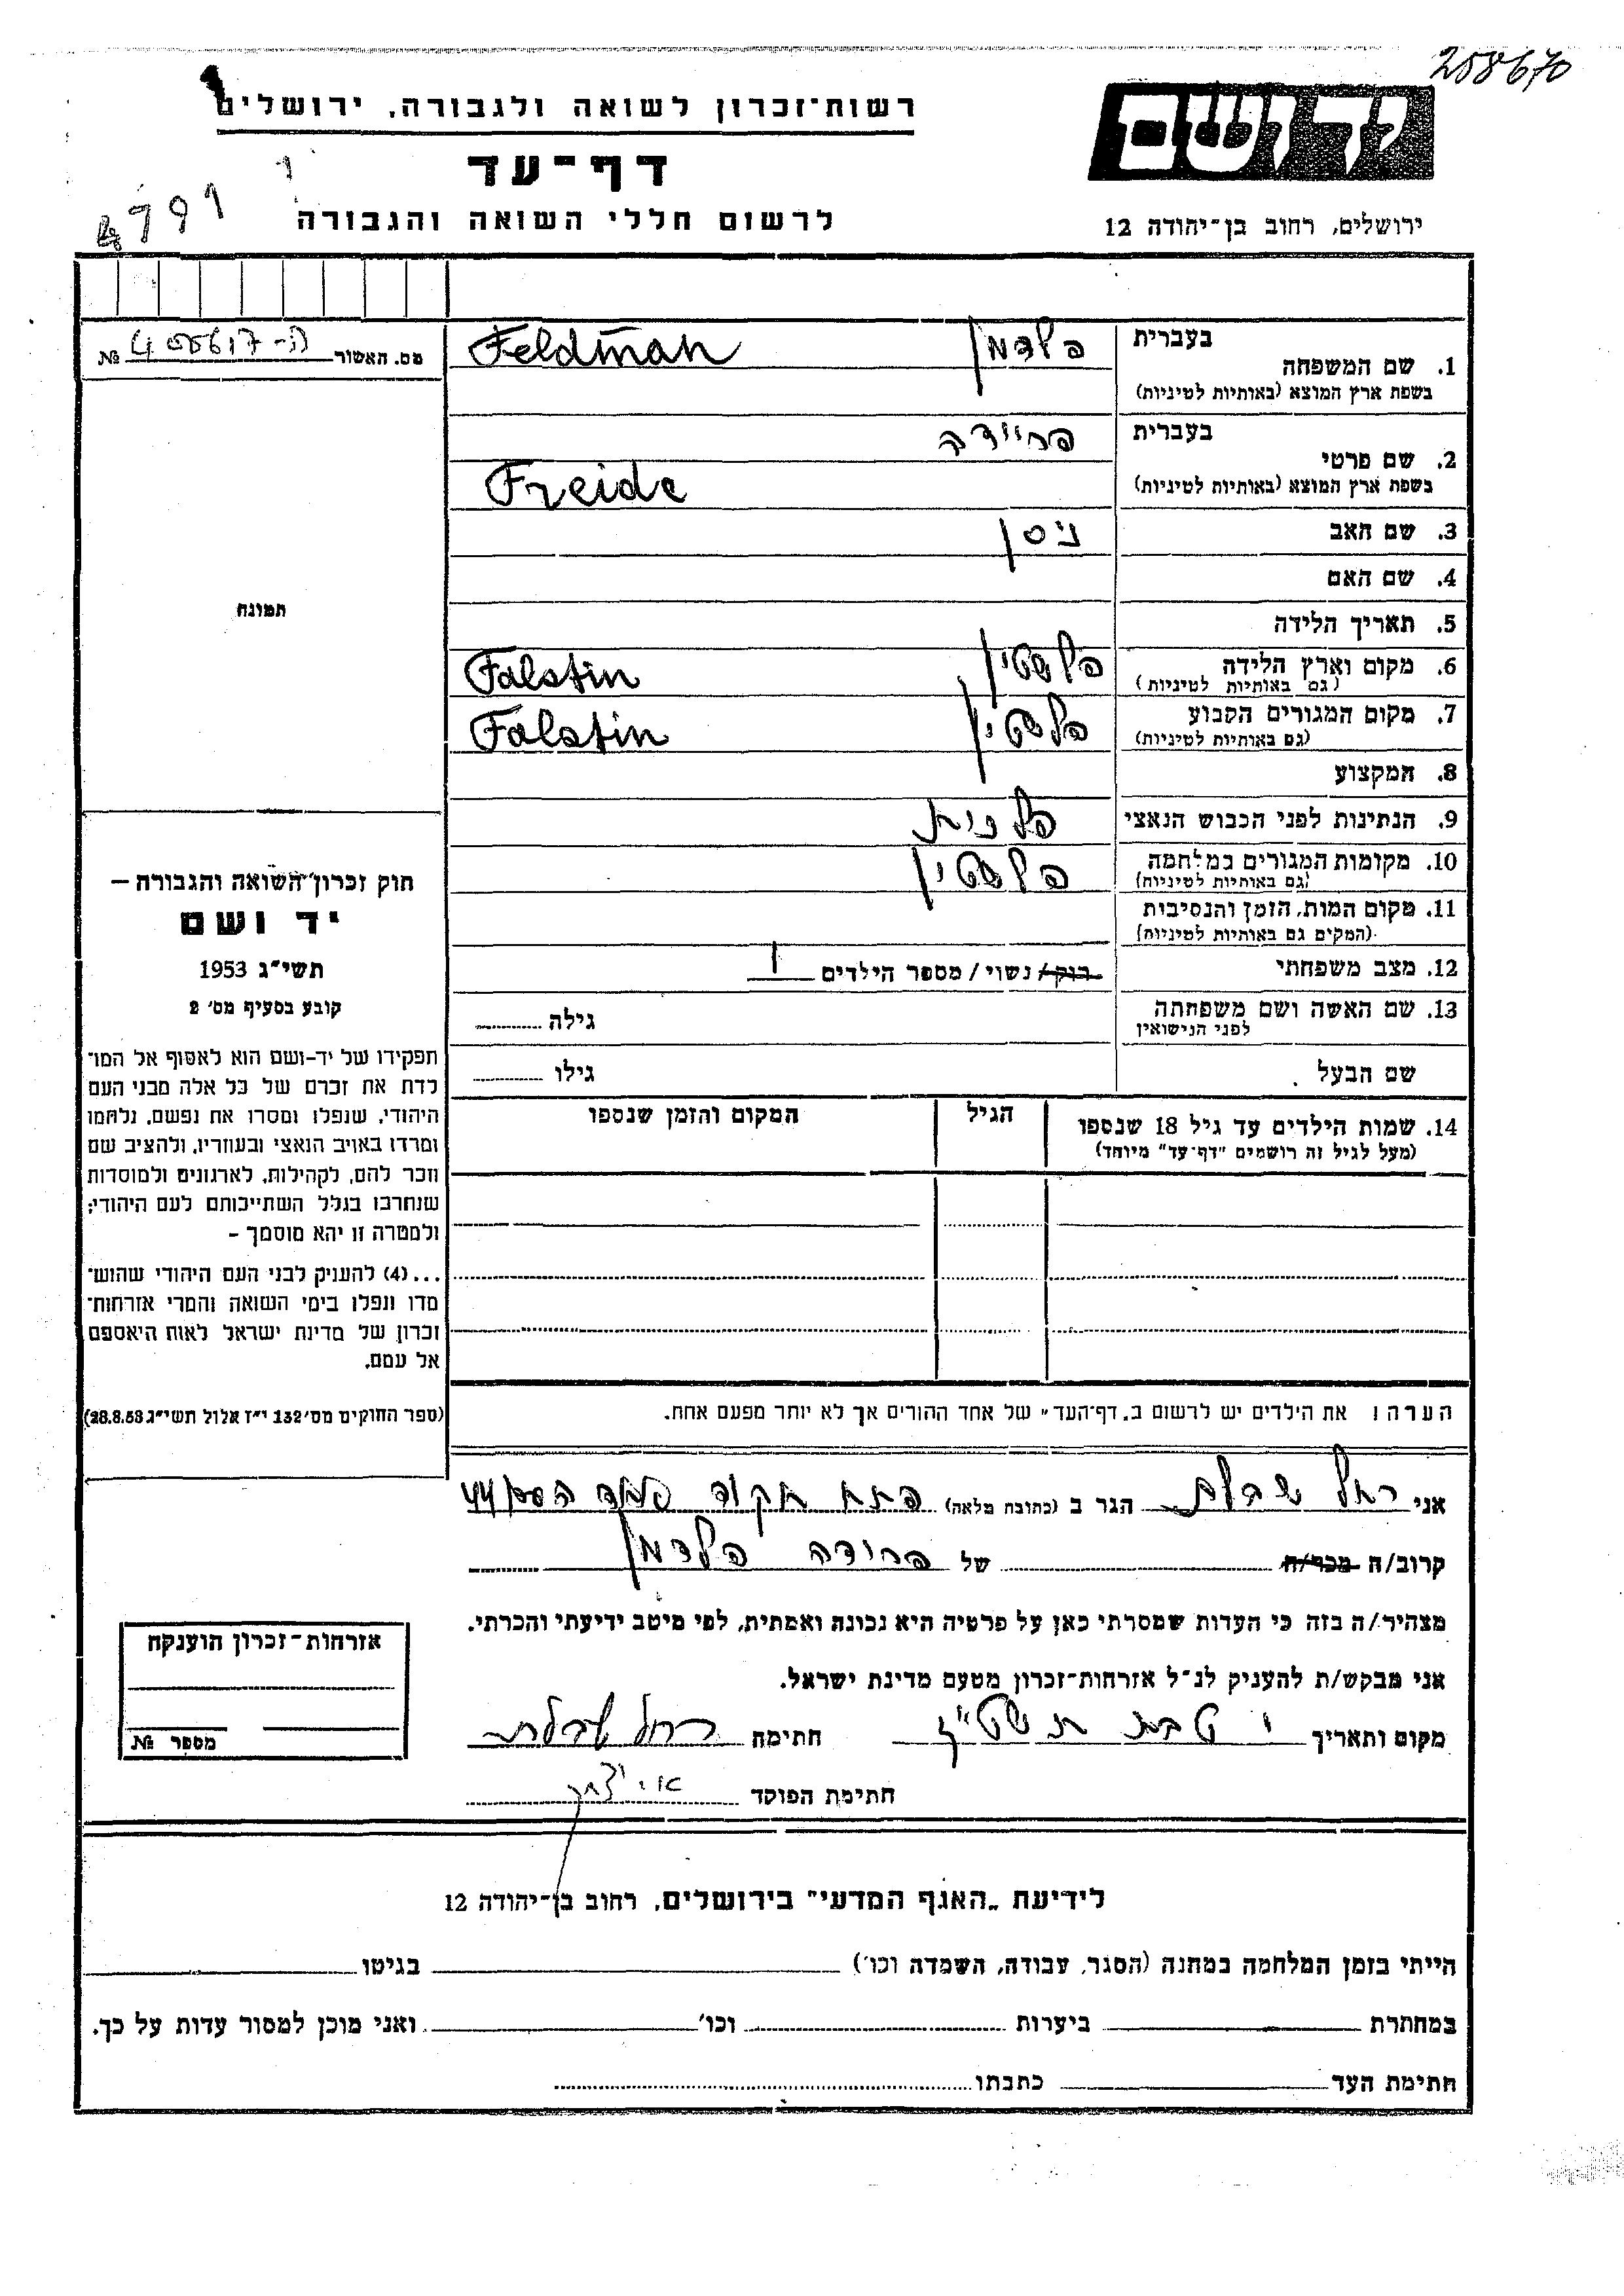 258670
רשות־זכרון לשואה ולגבורה, ירושלים
יד ושם
דף־עד
4791
לרשום חללי השואה והגבורה
ירושלים, רחוב בן־יהודה 12
מס. האשור № 405617-ה
בעברית פלדמן Feldman
1. שם המשפחה
בשפת ארץ המוצא (באותיות לטיניות)
בעברית פריידה
2. שם פרטי
בשפת ארץ המוצא (באותיות לטיניות) Freide
3. שם האב ניסן
4. שם האם
5. תאריך הלידה
6. מקום וארץ הלידה פלשטין Falstin
(גם באותיות לטיניות)
7. מקום המגורים הקבוע פלשטין Falstin
(גם באותיות לטיניות)
8. המקצוע
9. הנתינות לפני הכבוש הנאצי פלנית
10. מקומות המגורים במלחמה פלשטין
(גם באותיות לטיניות)
11. מקום המות, הזמן והנסיבות
(המקום גם באותיות לטיניות)
12. מצב משפחתי רווק/ נשוי/ מספר הילדים 1
13. שם האשה ושם משפחתה גילה
לפני הנישואין
שם הבעל גילו
14. שמות הילדים עד גיל 18 שנספו הגיל המקום והזמן שנספו
(מעל לגיל זה רושמים "דף־עד" מיוחד)
תמונה
חוק זכרון השואה והגבורה –
יד ושם
תשי"ג 1953
קובע בסעיף מס' 2
תפקידו של יד-ושם הוא לאסוף אל המו־
לדת את זכרם של כל אלה מבני העם
היהודי, שנפלו ומסרו את נפשם, נלחמו
ומרדו באויב הנאצי ובעוזריו, ולהציב שם
וזכר להם, לקהילות, לארגונים ולמוסדות
שנחרבו בגלל השתייכותם לעם היהודי;
ולמטרה זו יהא מוסמך –
...(4) להעניק לבני העם היהודי שהוש־
מדו ונפלו בימי השואה והמרי אזרחות־
זכרון של מדינת ישראל לאות היאספם
אל עמם.
(ספר החוקים מס' 132 י"ז אלול תשי"ג 28.8.53)
הערה: את הילדים יש לרשום ב"דף־העד" של אחד ההורים אך לא יותר מפעם אחת.
אני רחל הגר ב (כתובת מלאה) פתח תקוה 44
קרוב/ה מכר/ה של פרידה פלדמן
מצהיר/ה בזה כי העדות שמסרתי כאן על פרטיה היא נכונה ואמתית, לפי מיטב ידיעתי והכרתי.
אני מבקש/ת להעניק לנ"ל אזרחות־זכרון מטעם מדינת ישראל.
מקום ותאריך י טבת תשט"ז חתימה רחל
חתימת הפוקד
אזרחות־זכרון הוענקה
מספר №
לידיעת "האגף המדעי" בירושלים, רחוב בן־יהודה 12
הייתי בזמן המלחמה במחנה (הסגר, עבודה, השמדה וכו') בגיטו
במחתרת ביערות וכו' ואני מוכן למסור עדות על כך.
חתימת העד כתבתו